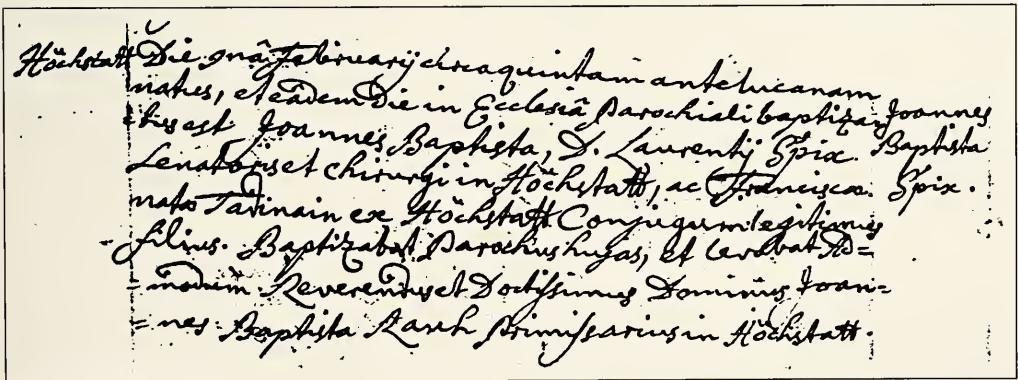 Höchstatt Die 9nâ February circa quintam antelucanam
natus, et eâdem Die in Ecclesiâ Parochiali baptiza= Joannes
=tus est Joannes Baptista, D. Laurentij Spix Baptista
Senatoris et Chirurgi in Höchstatt, ac Franciscae Spix.
natae Tavinain ex Höchstatt Conjugum legitimus
filius. Baptizabat Parochus hujas, et levabat Ad=
=modum Reverendus et Doctissimus Dominus Joan=
=nes Baptista Primissarius in Höchstatt.